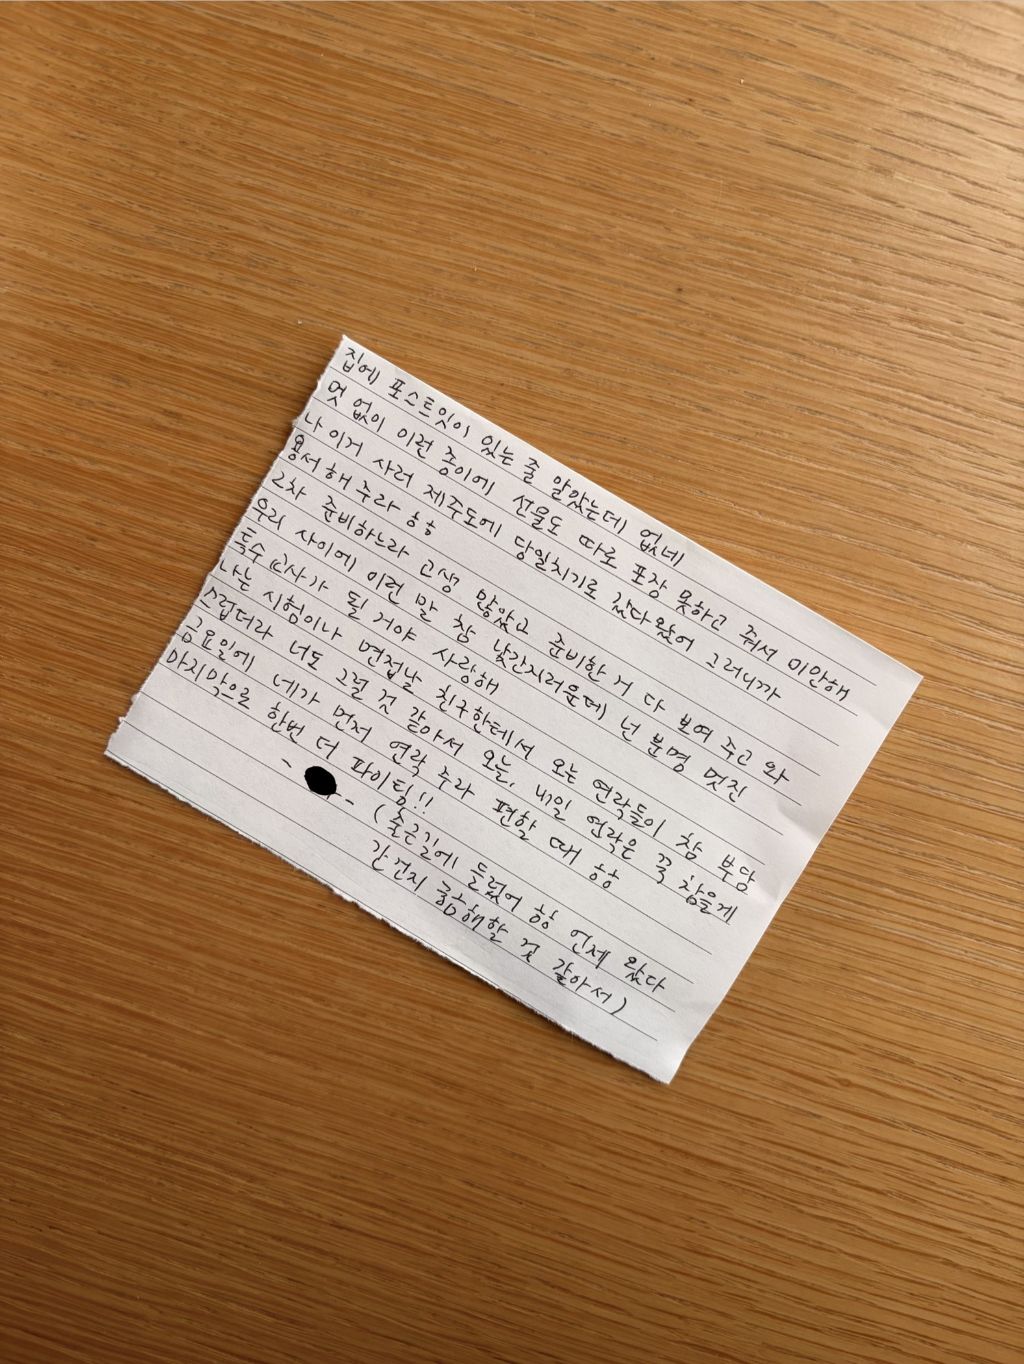 집에 포스트잇이 있는 줄 알았는데 없네
멋 없이 이런 종이에 선물도 따로 포장 못하고 줘서 미안해
나 이거 사러 제주도에 당일치기로 갔다왔어 그러니까
용서해주라 ㅎㅎ
2차 준비하느라 고생 많았고 준비한 거 다 보여 주고 와
우리 사이에 이런 말 참 낯간지러운데 넌 분명 멋진
특수교사가 될 거야 사랑해
나는 시험이나 면접날 친구한테서 오는 연락들이 참 부담
스럽더라 너도 그럴 것 같아서 오늘, 내일 연락은 꼭 참을게
금요일에 네가 먼저 연락 주라 편할 때 ㅎㅎ
마지막으로 한번 더 파이팅!!
(출근길에 들렀어 ㅎㅎ 언제 왔다
간건지 궁금해할 것 같아서)